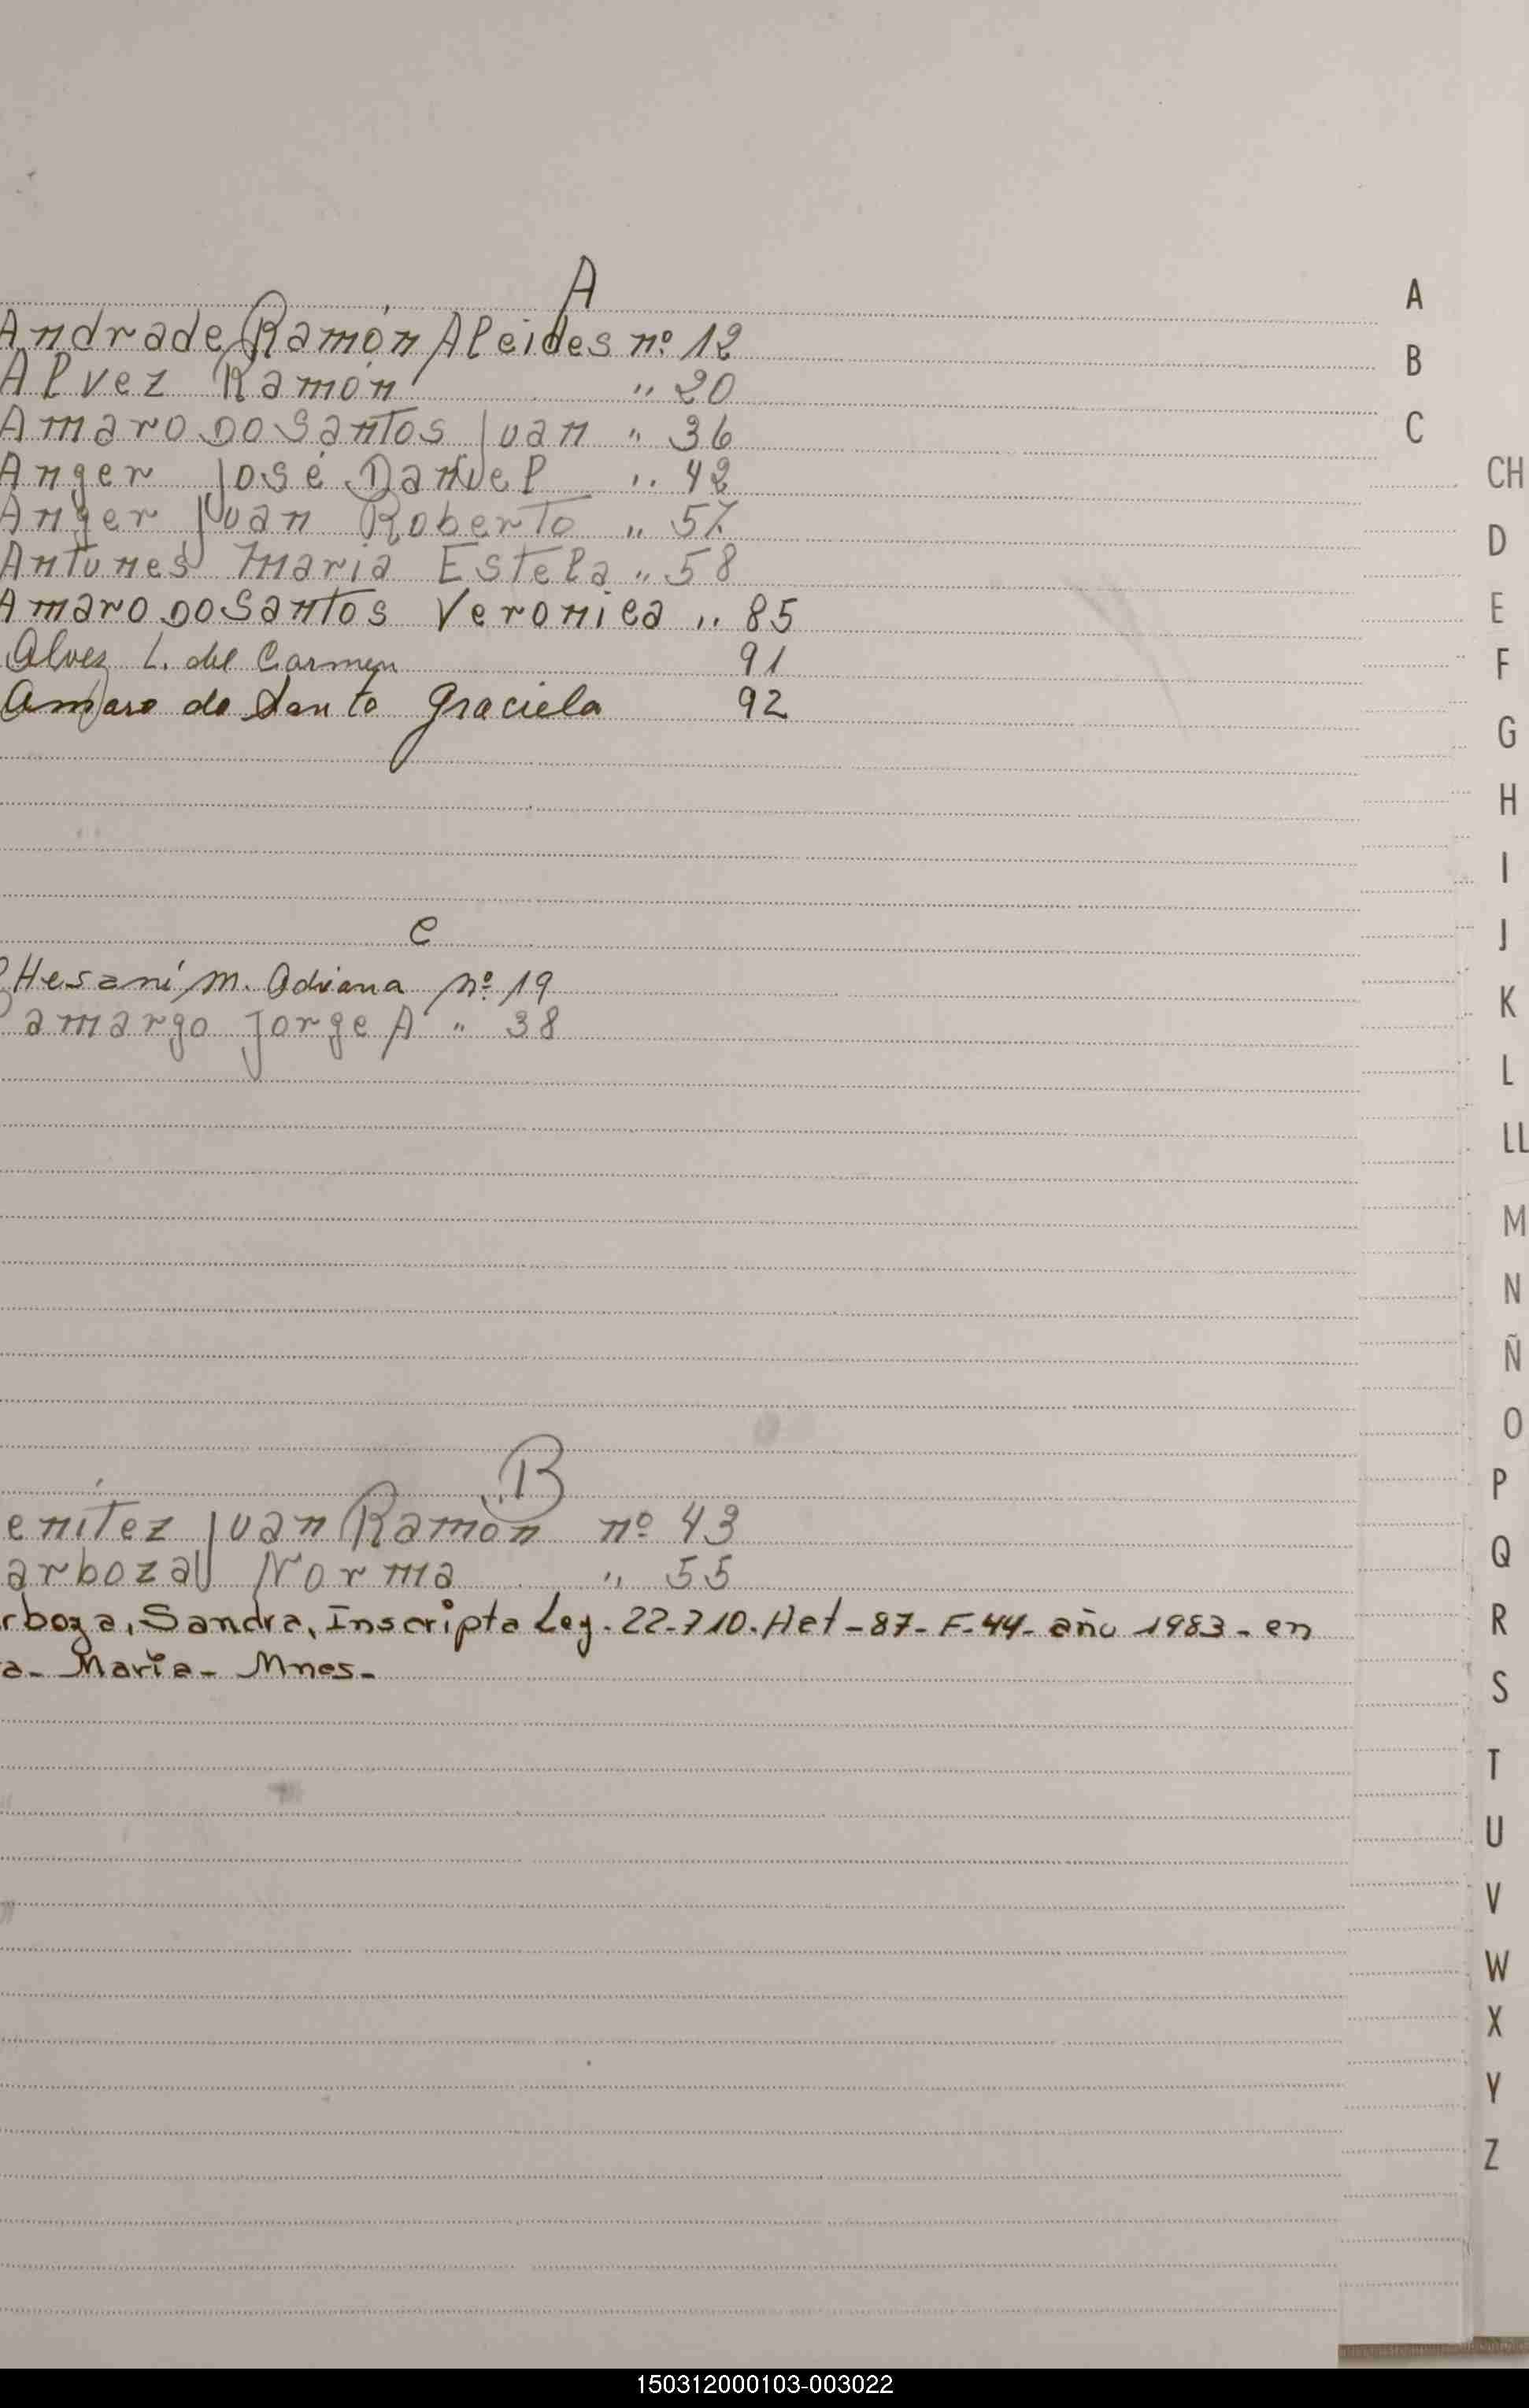 A
Andrade Ramón Alcides nº 12
Alvez Ramón " 20
Amaro Do Santos Juan " 36
Anger José Daniel " 42
Anger Juan Roberto " 57
Antunes Maria Estela " 58
Amaro Do Santos Veronica " 85
Alvez L. del Carmen 91
Amaro do Santo Graciela 92
C
Hesani M. Adriana nº 19
amargo Jorge A " 38
B
enítez Juan Ramón nº 43
arboza Norma " 55
rboza, Sandra, Inscripta Ley. 22.710. Act-87-F-44- año 1983- en
a- Maria- Mnes-
A
B
C
CH
D
E
F
G
H
I
J
K
L
LL
M
N
Ñ
O
P
Q
R
S
T
U
V
W
X
Y
Z
150312000103-003022